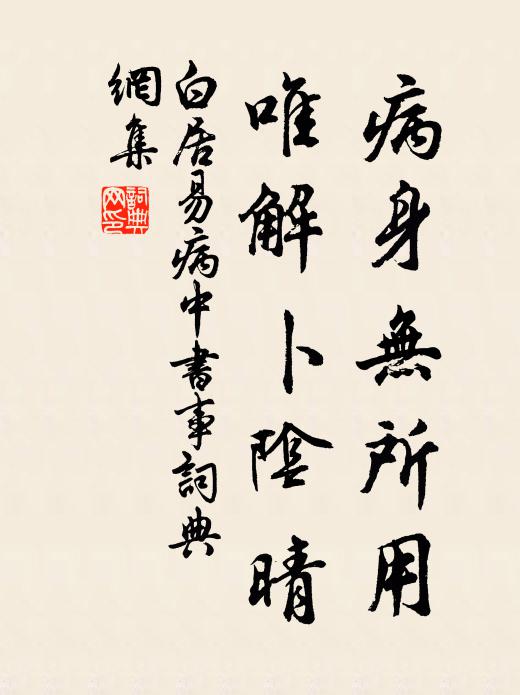 病身無所用
唯解卜陰晴
白居易病中書事詞典
網集
詞典網印